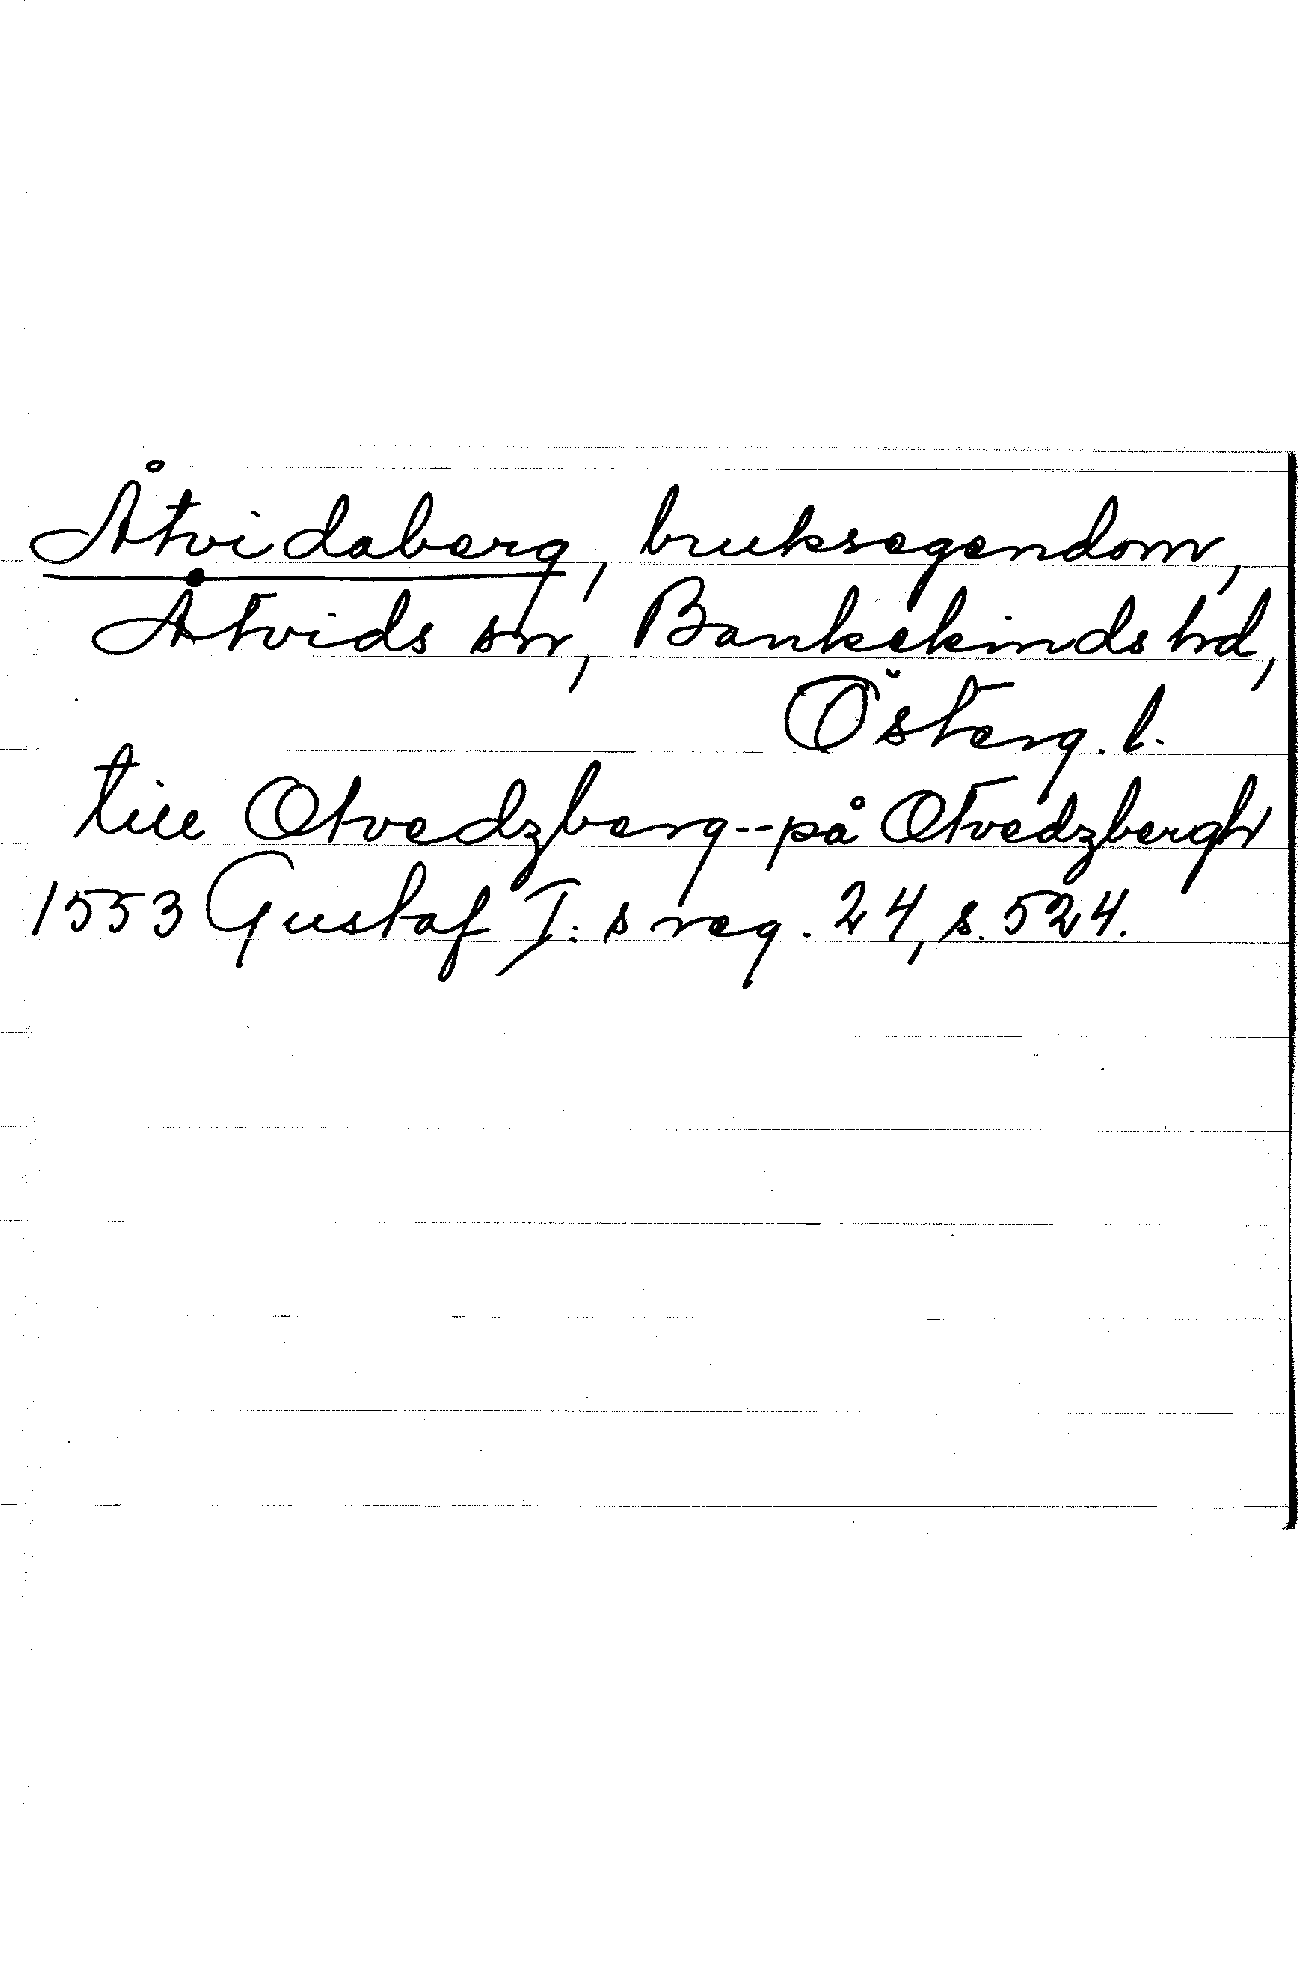 Åtvidaberg, bruksegendom,
Åtvids sn, Bankekinds hd,
Österg. l.
till Otvedzberg--på Otvedzbergh
1553 Gustaf I:s reg. 24, s. 524.